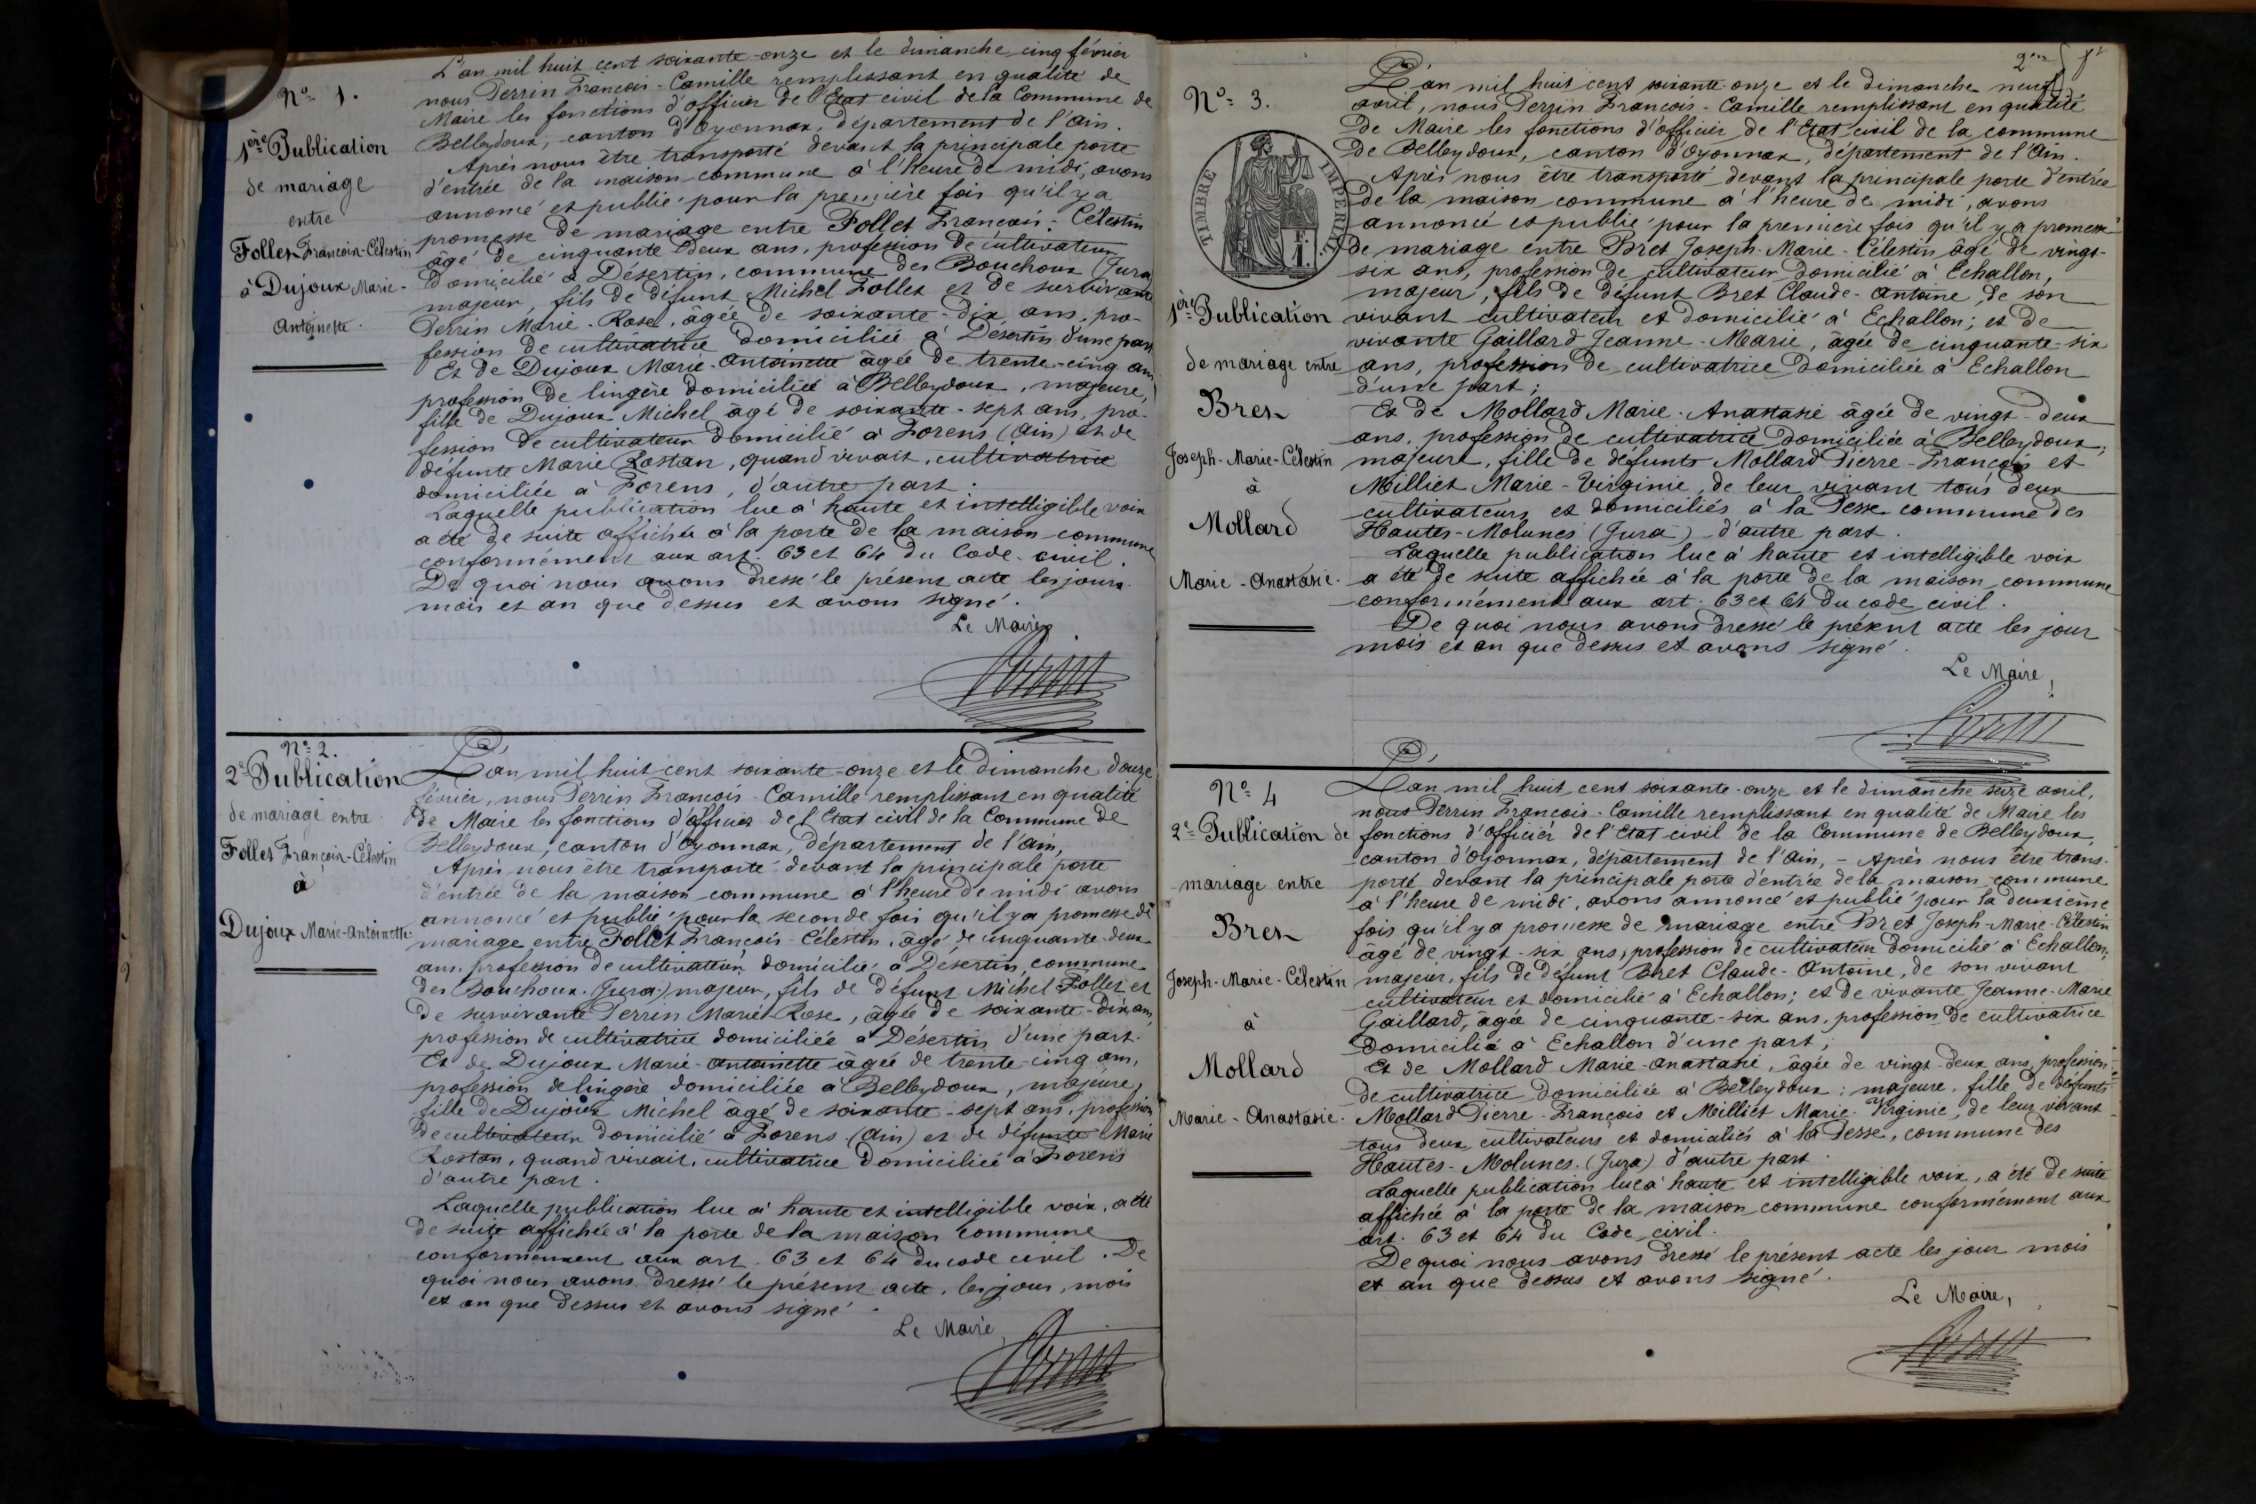 N° 1.
1ère Publication
de mariage
entre
Follet François-Célestin
à Dujoux Marie-
Antoinette.
L'an mil huit cent soixante-onze et le dimanche cinq février
nous Perrin François-Camille remplissant en qualité de
Maire les fonctions d'officier de l'Etat civil de la Commune de
Belleydoux, canton d'Oyonnax, département de l'Ain.
Après nous être transporté devant la principale porte
d'entrée de la maison commune à l'heure de midi, avons
annoncé et publié pour la première fois qu'il y a
promesse de mariage entre Follet François-Célestin
âgé de cinquante deux ans, profession de cultivateur
domicilié à Désertin, commune des Bouchoux (Jura)
majeur, fils de défunt Michel Follet et de survivante
Perrin Marie-Rose, âgée de soixante-dix ans, pro-
fession de cultivatrice domiciliée à Désertin d'une part
Et de Dujoux Marie-Antoinette âgée de trente-cinq ans
profession de lingère domiciliée à Belleydoux, majeure,
fille de Dujoux Michel âgé de soixante-sept ans, pro-
fession de cultivateur domicilié à Forens (Ain) et de
défunte Marie Rostan, quand vivait, cultivatrice
domiciliée à Forens, d'autre part.
Laquelle publication lue à haute et intelligible voix
a été de suite affichée à la porte de la maison commune
conformément aux art. 63 et 64 du Code civil.
De quoi nous avons dressé le présent acte les jours
mois et an que dessus et avons signé.
Le Maire,
Perrin
N° 2.
2e Publication
de mariage entre
Follet François-Célestin
à
Dujoux Marie-Antoinette.
L'an mil huit cent soixante-onze et le dimanche douze
février, nous Perrin François-Camille remplissant en qualité
de Maire les fonctions d'officier de l'Etat civil de la Commune de
Belleydoux, canton d'Oyonnax, département de l'Ain,
Après nous être transporté devant la principale porte
d'entrée de la maison commune à l'heure de midi avons
annoncé et publié pour la seconde fois qu'il y a promesse de
mariage entre Follet François-Célestin, âgé de cinquante-deux
ans, profession de cultivateur domicilié à Désertin, commune
des Bouchoux (Jura) majeur, fils de défunt Michel Follet et
de survivante Perrin Marie-Rose, âgée de soixante-dix ans,
profession de cultivatrice domiciliée à Désertin d'une part.
Et de Dujoux Marie-Antoinette âgée de trente-cinq ans,
profession de lingère domiciliée à Belleydoux, majeure,
fille de Dujoux Michel âgé de soixante-sept ans, profession
de cultivateur domicilié à Forens (Ain) et de défunte Marie
Rostan, quand vivait, cultivatrice domiciliée à Forens
d'autre part.
Laquelle publication lue à haute et intelligible voix, a été
de suite affichée à la porte de la maison commune
conformément aux art. 63 et 64 du code civil. De
quoi nous avons dressé le présent acte, les jour, mois
et an que dessus et avons signé.
Le Maire,
Perrin
N° 3.
TIMBRE IMPERIAL
1ère Publication
de mariage entre
Bret
Joseph-Marie-Célestin
à
Mollard
Marie-Anastasie.
L'an mil huit cent soixante-onze et le dimanche neuf
avril, nous Perrin François-Camille remplissant en qualité
de Maire les fonctions d'officier de l'Etat civil de la commune
de Belleydoux, canton d'Oyonnax, département de l'Ain.
Après nous être transporté devant la principale porte d'entrée
de la maison commune à l'heure de midi, avons
annoncé et publié pour la première fois qu'il y a promesse
de mariage entre Bret Joseph-Marie-Célestin âgé de vingt-
six ans, profession de cultivateur domicilié à Echallon,
majeur, fils de défunt Bret Claude-Antoine, de son
vivant cultivateur et domicilié à Echallon; et de
vivante Gaillard Jeanne-Marie, âgée de cinquante-six
ans, profession de cultivatrice domiciliée à Echallon
d'une part;
Et de Mollard Marie-Anastasie âgée de vingt-deux
ans, profession de cultivatrice domiciliée à Belleydoux,
majeure, fille de défunts Mollard Pierre-François et
Milliet Marie-Virginie, de leur vivant tous deux
cultivateurs et domiciliés à la Pesse commune des
Hautes-Molunes (Jura) d'autre part.
Laquelle publication lue à haute et intelligible voix
a été de suite affichée à la porte de la maison commune
conformément aux art. 63 et 64 du code civil.
De quoi nous avons dressé le présent acte les jour
mois et an que dessus et avons signé.
Le Maire,
Perrin
N° 4
2e Publication de
mariage entre
Bret
Joseph-Marie-Célestin
à
Mollard
Marie-Anastasie.
L'an mil huit cent soixante-onze et le dimanche seize avril,
nous Perrin François-Camille remplissant en qualité de Maire les
fonctions d'officier de l'Etat civil de la Commune de Belleydoux,
canton d'Oyonnax, département de l'Ain, - Après nous être trans-
porté devant la principale porte d'entrée de la maison commune
à l'heure de midi, avons annoncé et publié pour la deuxième
fois qu'il y a promesse de mariage entre Bret Joseph-Marie-Célestin
âgé de vingt-six ans, profession de cultivateur domicilié à Echallon,
majeur, fils de défunt Bret Claude-Antoine, de son vivant
cultivateur et domicilié à Echallon; et de vivante Jeanne-Marie
Gaillard, âgée de cinquante-six ans, profession de cultivatrice
domiciliée à Echallon d'une part;
Et de Mollard Marie-Anastasie, âgée de vingt-deux ans, profession
de cultivatrice domiciliée à Belleydoux; majeure, fille de défunts
Mollard Pierre-François et Milliet Marie-Virginie, de leur vivant
tous deux cultivateurs et domiciliés à la Pesse, commune des
Hautes-Molunes. (Jura) d'autre part.
Laquelle publication lue à haute et intelligible voix, a été de suite
affichée à la porte de la maison commune conformément aux
art. 63 et 64 du Code civil.
De quoi nous avons dressé le présent acte les jour mois
et an que dessus et avons signé.
Le Maire,
Perrin